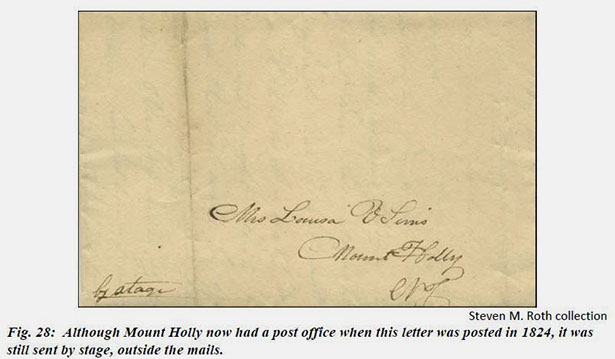 Mrs Louisa V Sims
Mount Holly
NJ
by stage
Steven M. Roth collection
Fig. 28: Although Mount Holly now had a post office when this letter was posted in 1824, it was
still sent by stage, outside the mails.